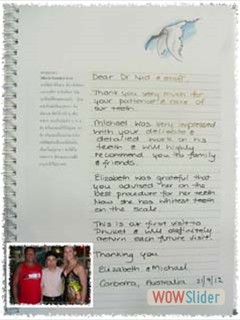 Dear Dr Nid & staff.
Thank you very much for
your patience & care of
our teeth.
Michael was very impressed
with your delicate &
detailed work on his
teeth & will highly
recommend you to family
& friends.
Elizabeth was grateful that
you advised her on the
best procedure for her teeth
Now she has whitest teeth
on the scale.
This is our first visit to
Phuket & will definitely
return each future visit.
Thanking you
Elizabeth & Michael
Canberra, Australia 21/9/12
WOWSlider